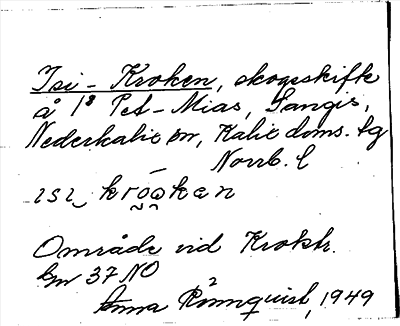 Isi-Kroken, skogsskifte
å 1⁸ Pet-Mias, Sangis,
Nederkalix sn, Kalix doms. tg
Norrb. l
ɪsɪ‿ krōo̯ken
Område vid Krokstr.
bn 37 NO
Anna Rönnquist, 1949